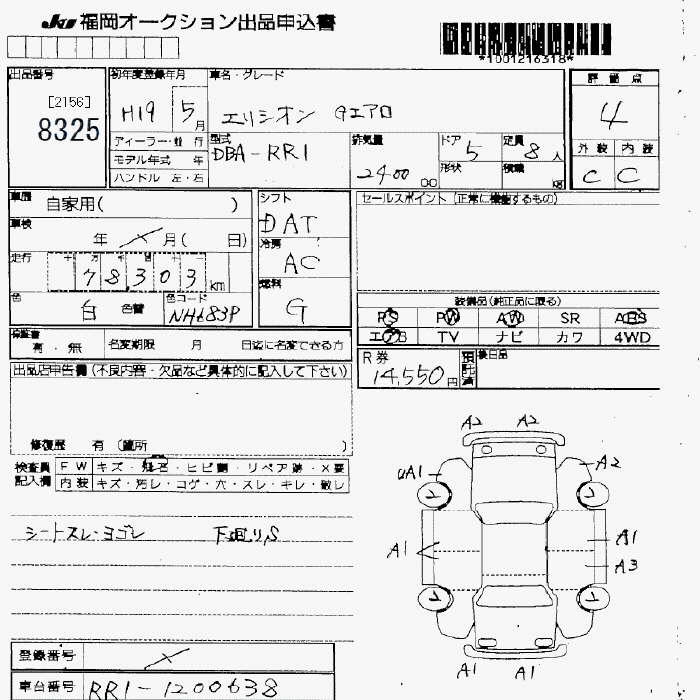 JU 福岡オークション出品申込書
*1001216318*
出品番号 初年度登録年月 車名・グレード 評価点
[2156]
8325
H19 5月 エリシオン Gエアロ 4
ディーラー・並行 型式 排気量 ドア 定員 外装 内装
モデル年式 年 DBA-RR1 2400 cc 5 8人 C C
ハンドル 左・右 形状 積載 kg
車歴 自家用( ) シフト セールスポイント (正常に機能するもの)
車検 年 / 月( 日) DAT
冷房
走行 78303 km AC
色 白 色替 色コード NH683P 燃料 G
装備品 (純正品に限る)
PS PW AW SR ABS
エアB TV ナビ カワ 4WD
保証書 有・無 名変期限 月 日迄に名変できる方
R券 14,550円 預託済 後日品
出品店申告欄 (不良内容・欠品など具体的に記入して下さい)
修復歴 有 (箇所 )
検査員記入欄 FW キズ・飛石・ヒビ割・リペア跡・X要
内装 キズ・汚レ・コゲ・穴・スレ・キレ・敏レ
シートスレ・ヨゴレ 下廻りS
A2 A2
UA1 A2
A1 A1
A3
A1 A1
登録番号
車台番号 RR1-1200638